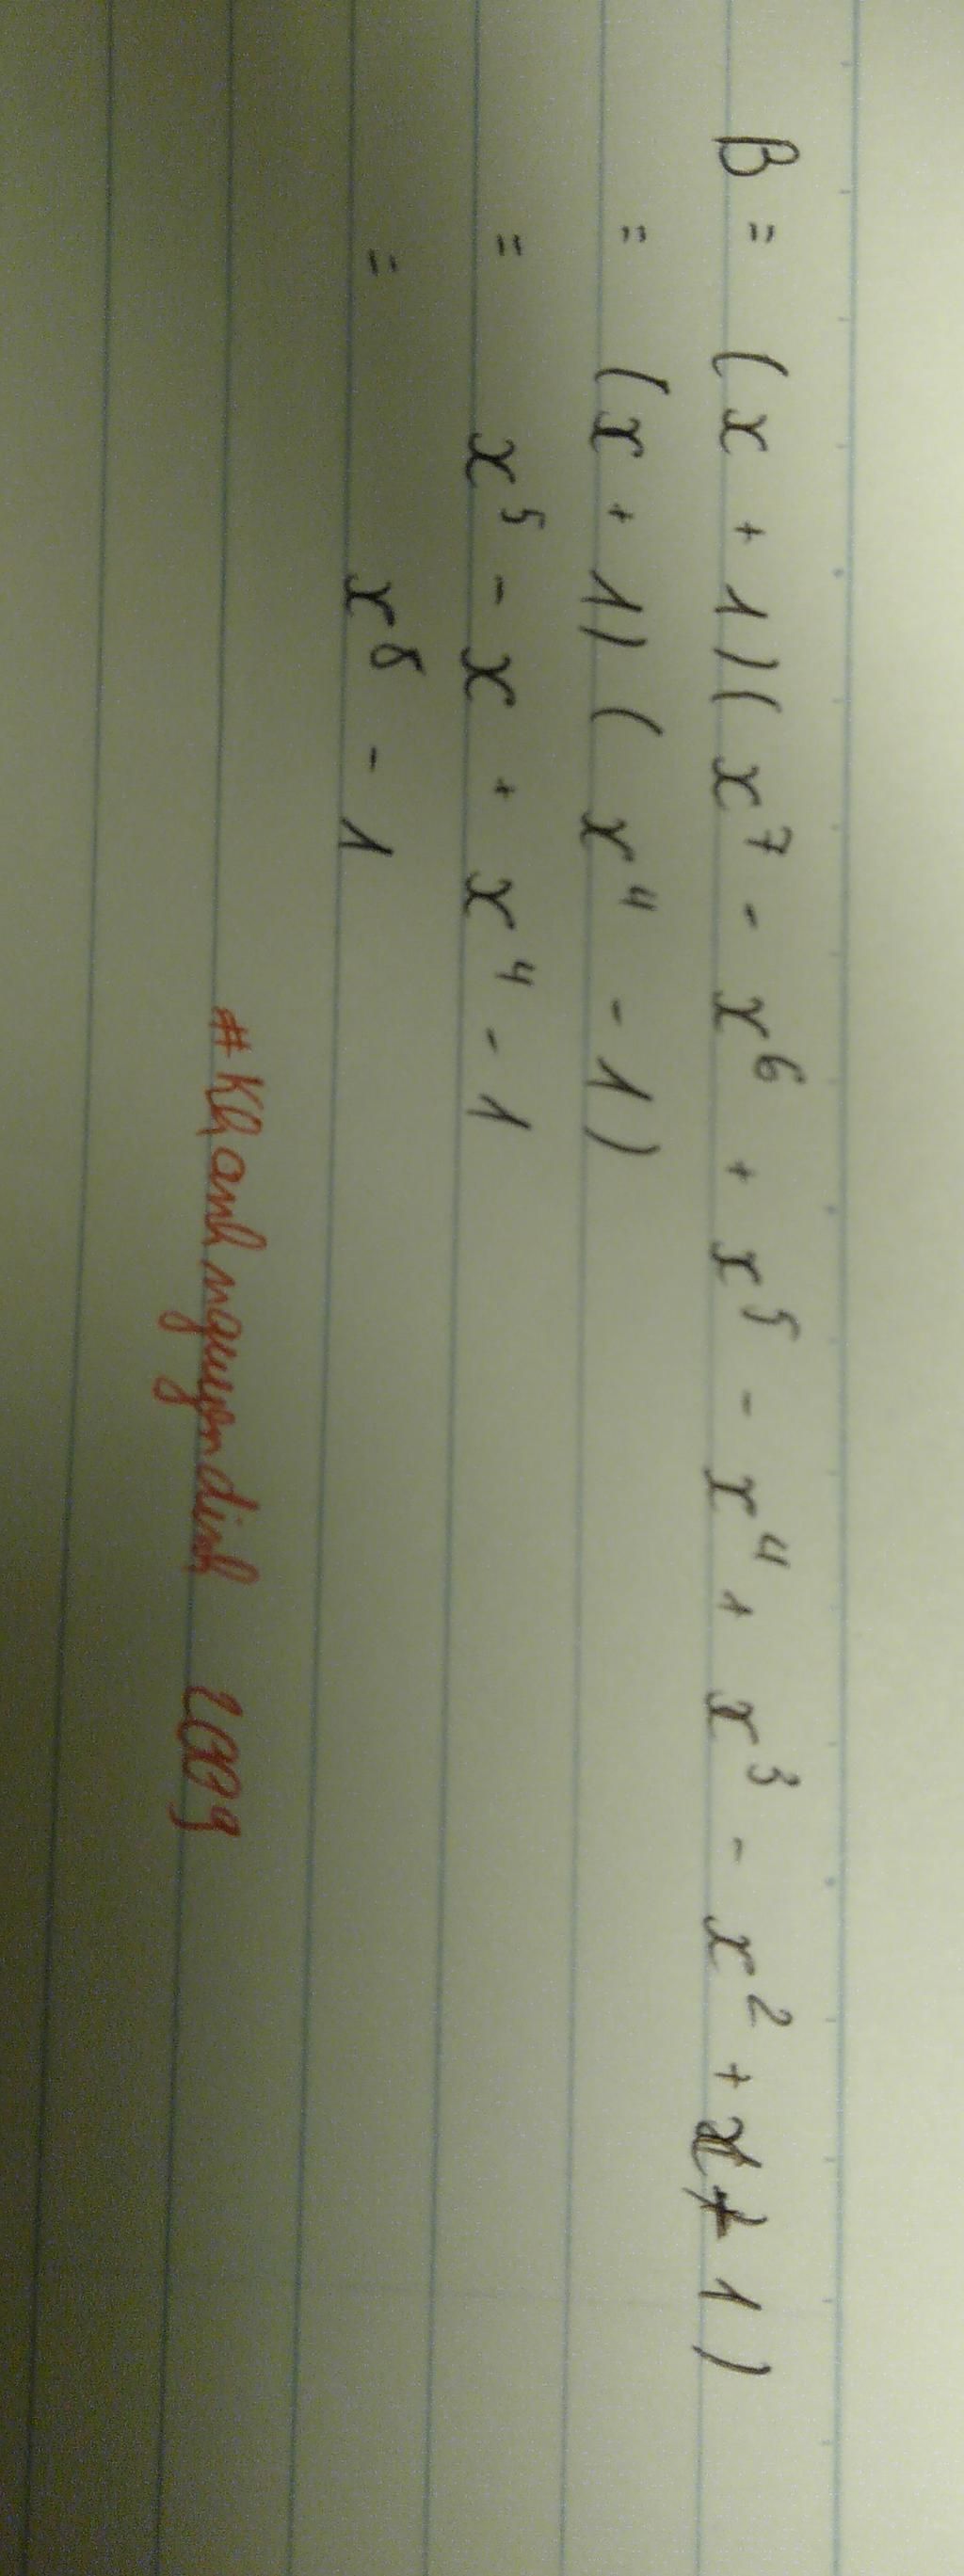 B = (x + 1)(x⁷ - x⁶ + x⁵ - x⁴ + x³ - x² + x - 1)
= (x + 1)(x⁴ - 1)
= x⁵ - x + x⁴ - 1
= x⁸ - 1
#Khanhnguyendinh 2009